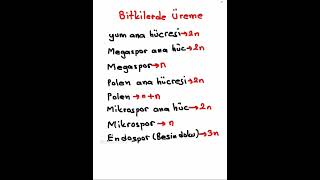 Bitkilerde Üreme
yum ana hücresi→2n
Megaspor ana hüc→2n
Megaspor→n
Polen ana hücresi→2n
Polen→n+n
Mikrospor ana hüc→2n
Mikrospor→n
Endospor (Besin doku)→3n